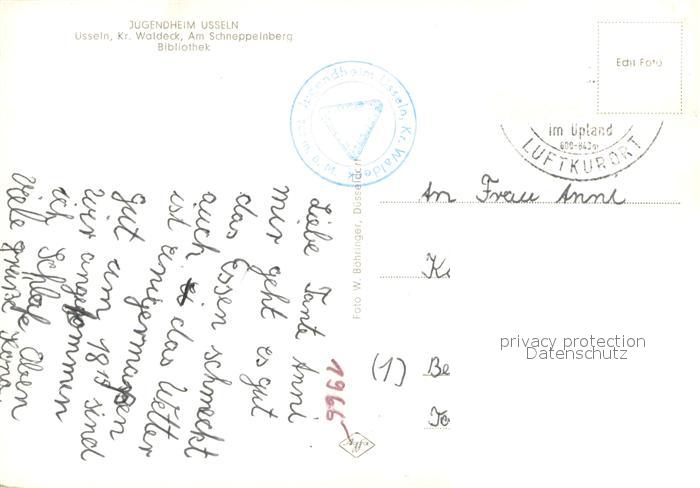 JUGENDHEIM USSELN
Usseln, Kr. Waldeck, Am Schneppelnberg
Bibliothek
Jugendheim Usseln, Kr. Waldeck
Echt Foto
im Upland
600-840m
LUFTKURORT
Foto W. Böhringer, Düsseldorf
An Frau Anni
(1) Be
privacy protection
Datenschutz
1966
Liebe Tante Anni
mir geht es gut
das Essen schmeckt
auch das Wetter
ist einigermaßen
gut um 18 15 sind
wir angekommen
ich schlafe Oben
Viele grüße Ilona